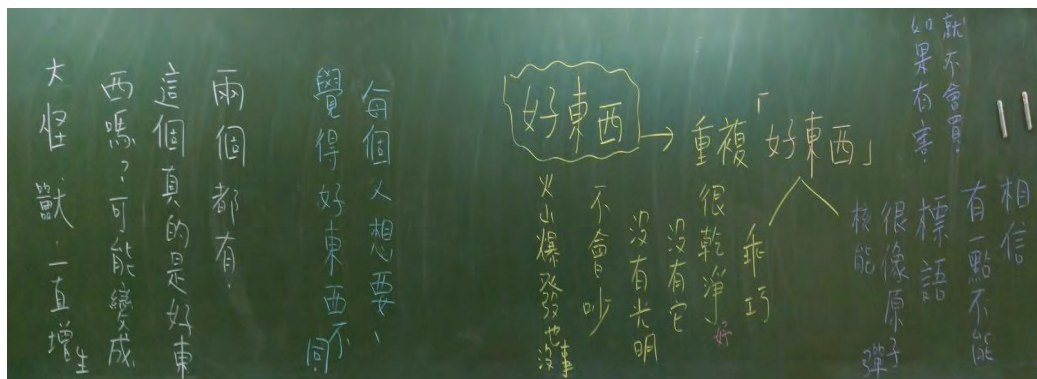 相信
有一點不能
就不會買.
如果有害.
標語
很像原子彈
核能
好東西→重複「好東西」
乖巧
很乾淨好
沒有它
沒有光明
不會吵
火山爆發也沒事
每個人想要、
覺得好東西不同
兩個都有.
這個真的是好東
西嗎?可能變成
大怪獸.一直增生